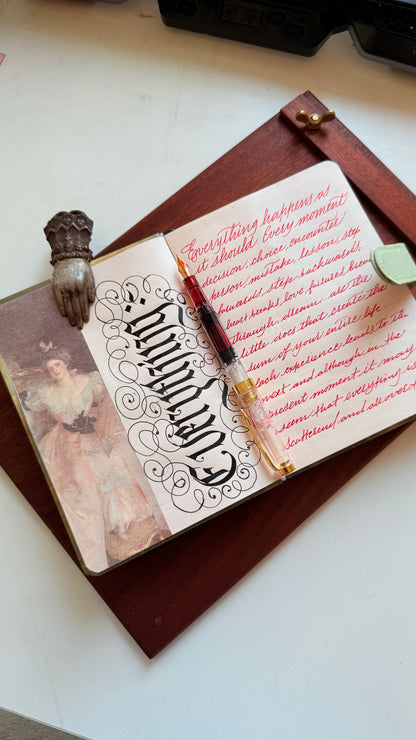 Everything:
Everything happens as
it should. Every moment
decision, choice, encounter
person, mistake, lesson, step
forwards, step backwards,
heart breaks, love, failures,
through, dream.. are the
little dots that create the
sum of your entire life
Each experience leads to the
next and although in the
present moment it may
seem that everything is
scattered, and all over